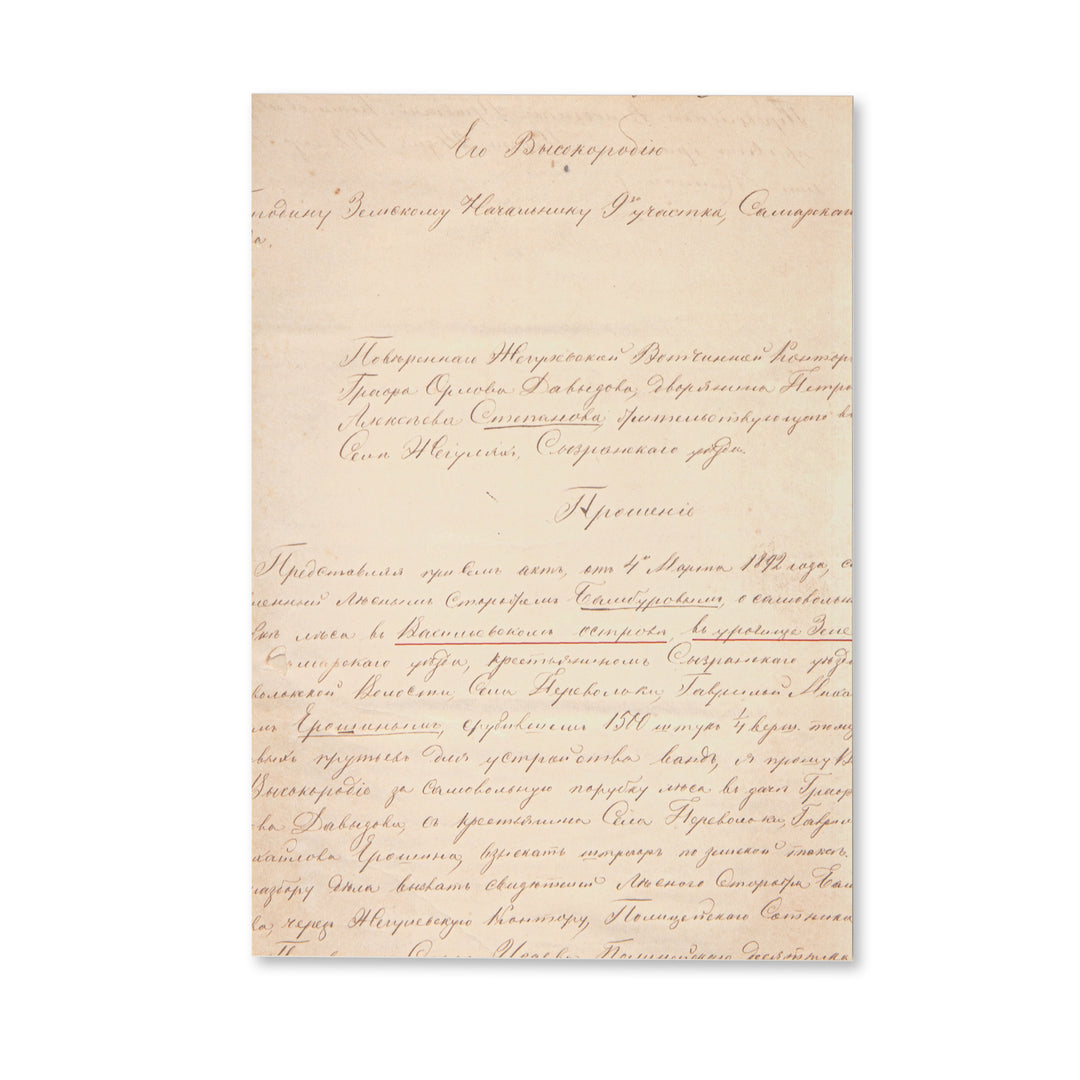 Его Высокородію
сподину Земскому Начальнику 9го участка, Самарскаг
да.
Повѣреннаго Жегулевской Вотчинной Контор
Графа Орлова Давыдова, дворянина Петра
Алексѣева Степанова, жительствующаго въ
Селѣ Жегуляхъ, Сызранскаго уѣзда.
Прошеніе
Представляя при семъ актъ, отъ 4го Марта 1892 года, со
ленный лѣснымъ Сторожемъ Бамбуровымъ, о самовольн
бкѣ лѣса въ Васильевскомъ островѣ, въ урочищѣ Зеле
Самарскаго уѣзда, крестьяниномъ Сызранскаго уѣзда
волокской Волости, Села Переволоки, Гавриломъ Миха
мъ Ерошинымъ, срубившимъ 1500 штукъ 1/4 верш. талу
выхъ прутьевъ для устройства вандъ, я прошу В
Высокородіе за самовольную порубку лѣса въ дачѣ Граф
ва Давыдова, съ крестьянина Села Переволоки, Гаврил
хайлова Ерошина, взыскать штрафъ по земской таксѣ.
разбору дѣла вызвать свидѣтелей Лѣсного Сторожа Бам
ва, черезъ Жегулевскую Контору, Полицейскаго Сотника